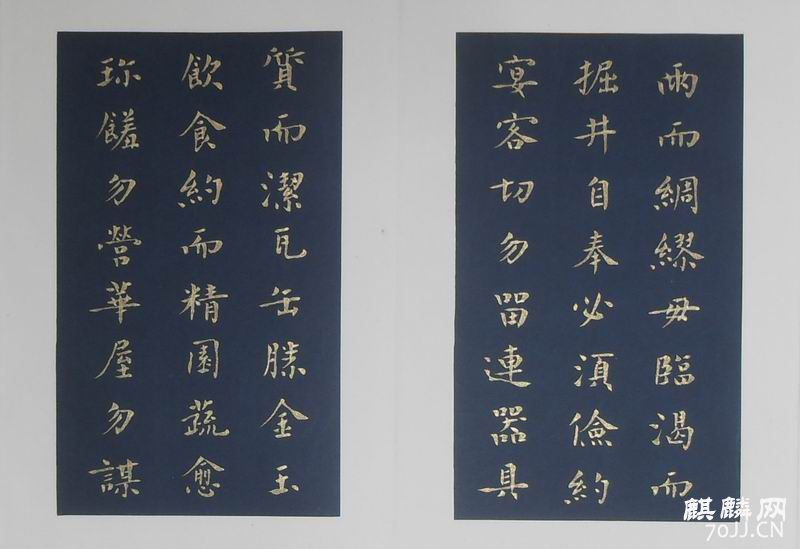 雨而綢繆毋臨渴而
掘井自奉必須儉約
宴客切勿留連器具
質而潔瓦缶勝金玉
飲食約而精園蔬愈
珍饈勿營華屋勿謀
麒麟网
70JJ.CN